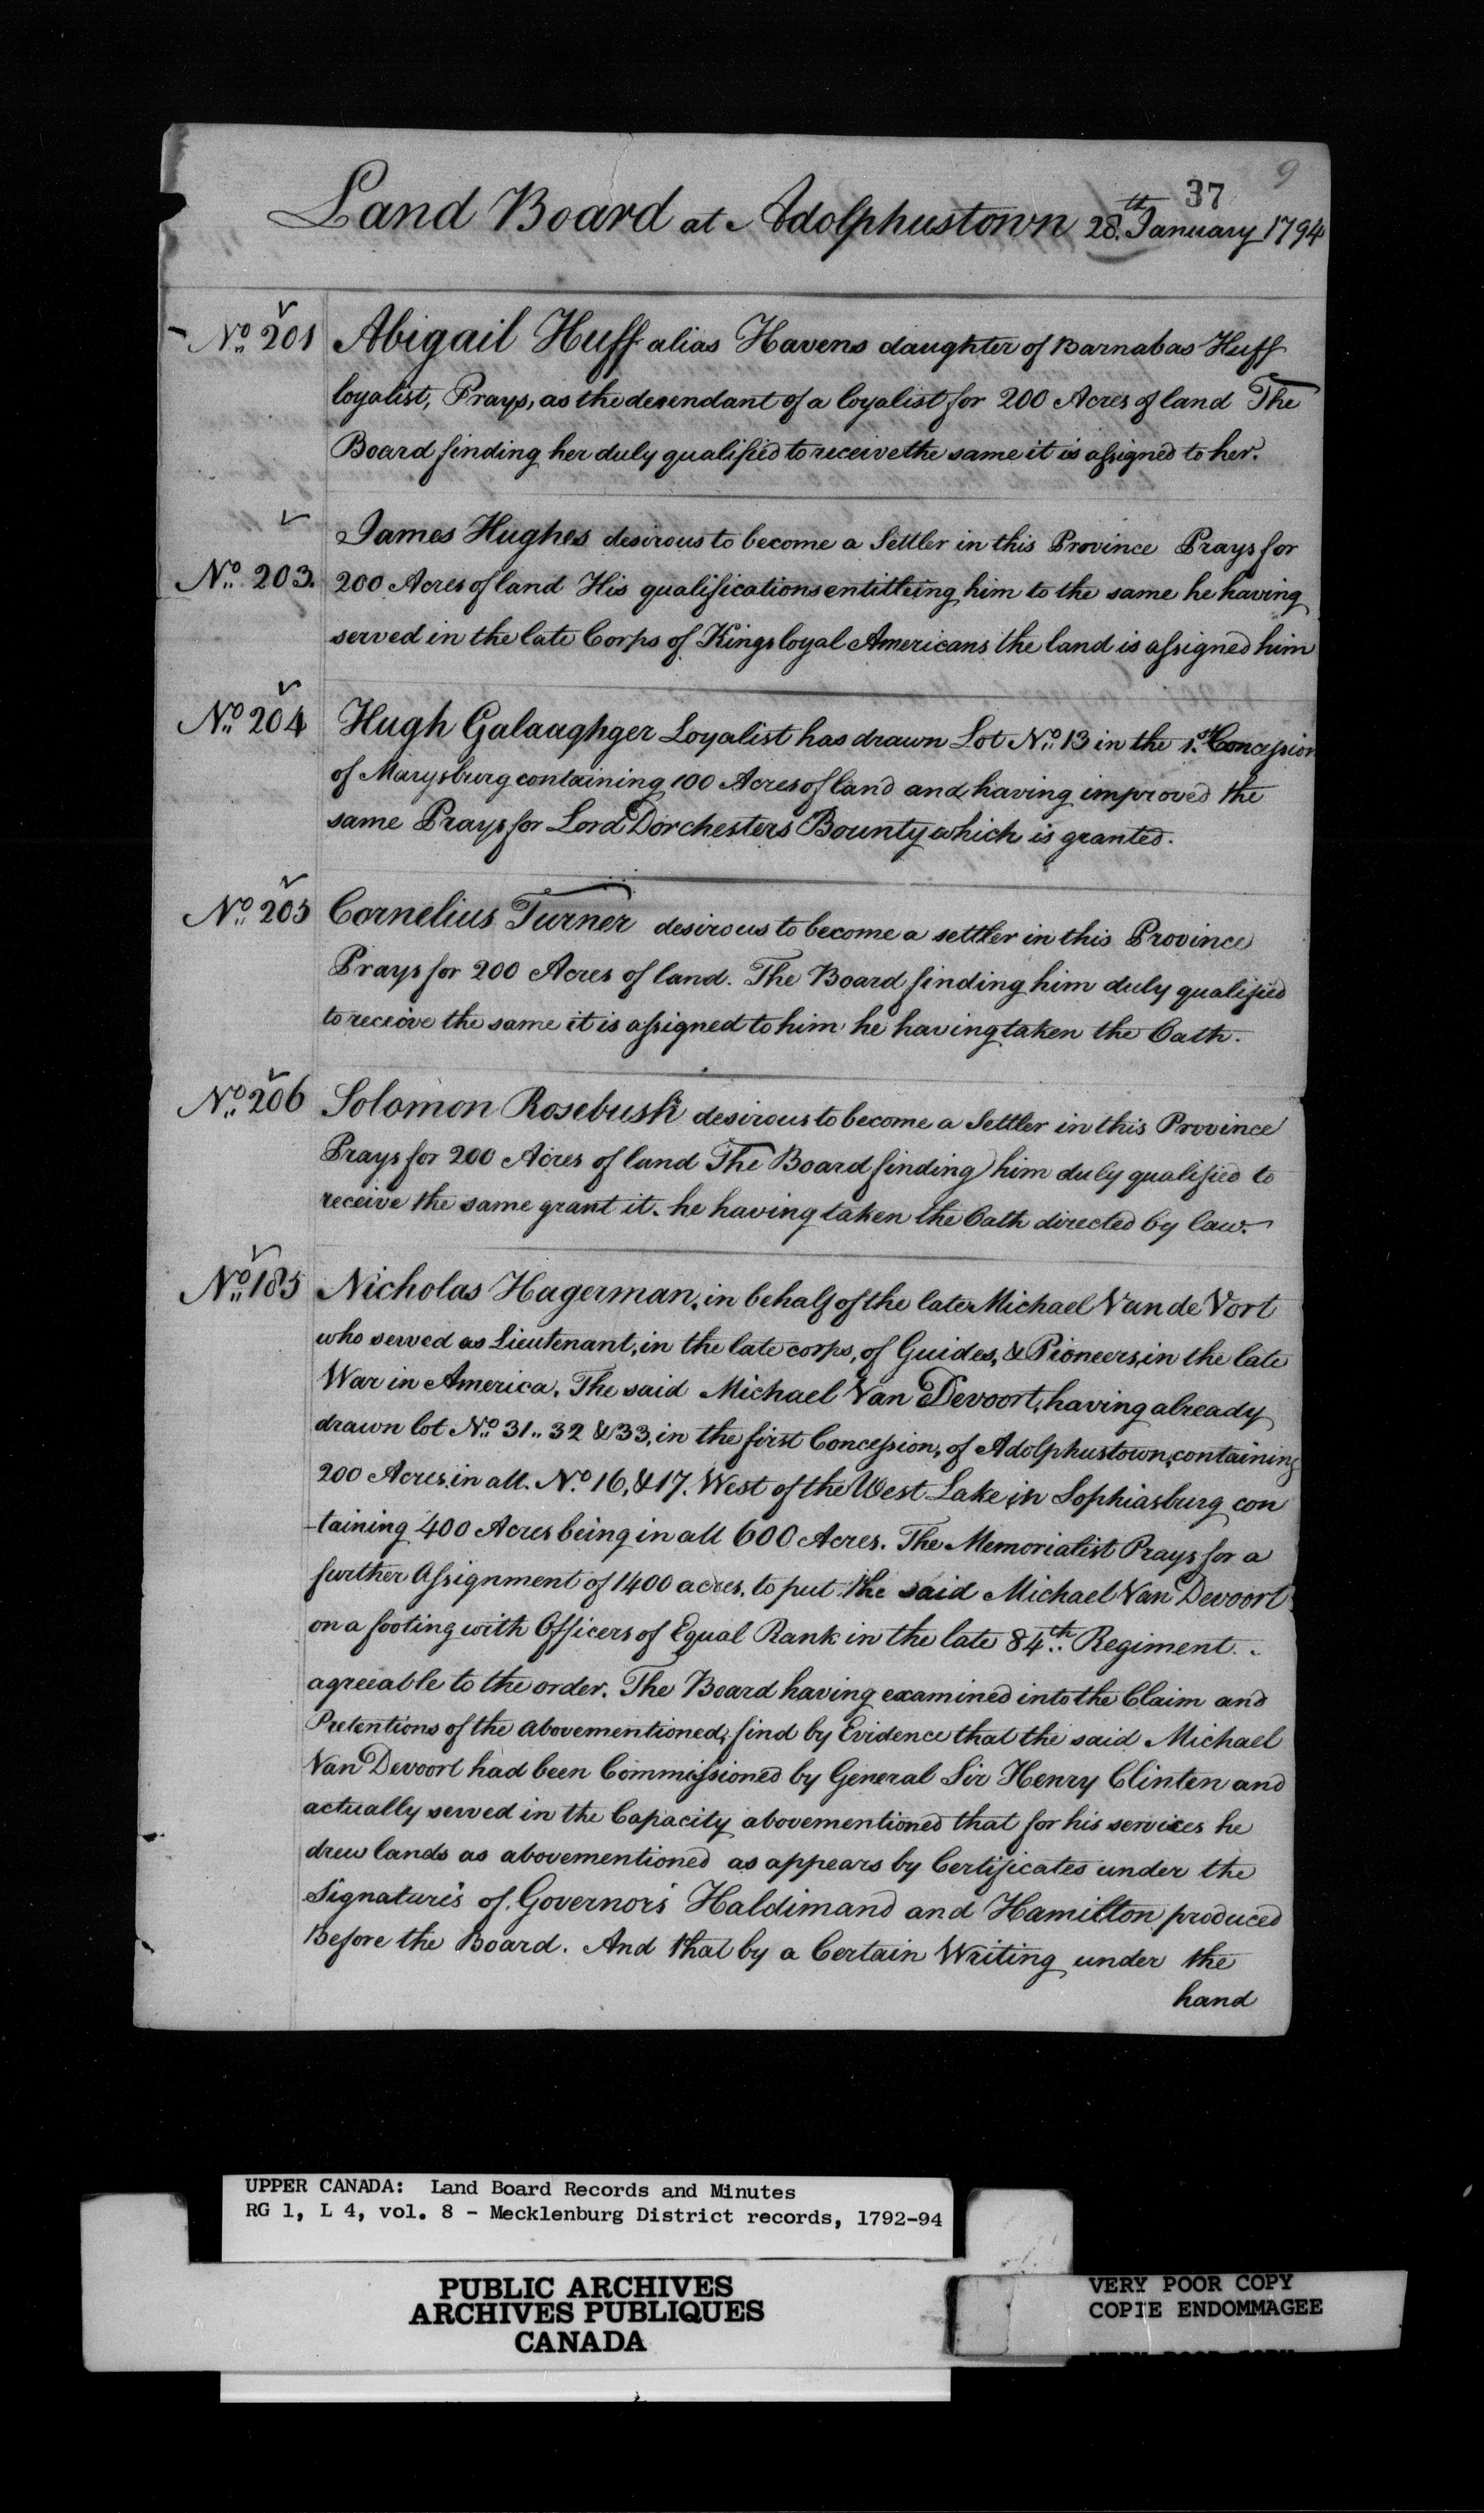 37
9
Land Board at Adolphustown 28.th January 1794
No. 201 Abigail Huff alias Havens daughter of Barnabas Huff
loyalist, Prays, as the desendant of a loyalist for 200 Acres of land The
Board finding her duly qualified to receive the same it is assigned to her.
James Hughes desirous to become a Settler in this Province Prays for
No. 203. 200 Acres of land His qualifications entitleing him to the same he having
served in the late Corps of Kings loyal Americans the land is assigned him
No. 204 Hugh Galaaghger Loyalist has drawn Lot No. 13 in the 1.st Concession
of Marysburg containing 100 Acres of land and having improved the
same Prays for Lord Dorchesters Bounty which is granted.
No. 205 Cornelius Turner desirous to become a settler in this Province
Prays for 200 Acres of land. The Board finding him duly qualified
to receive the same it is assigned to him he having taken the Oath.
No. 206 Solomon Rosebush desirous to become a Settler in this Province
Prays for 200 Acres of land The Board finding him duly qualified to
receive the same grant it. he having taken the Oath directed by law.
No. 185 Nicholas Hagerman, in behalf of the late Michael Van de Vort
who served as Lieutenant, in the late corps, of Guides, & Pioneers, in the late
War in America. The said Michael Van Devoort, having already
drawn lot No. 31.. 32 & 33, in the first Concession, of Adolphustown, containing
200 Acres. in all. No. 16, & 17. West of the West Lake in Sophiasburg con
-taining 400 Acres being in all 600 Acres. The Memorialist Prays for a
further Assignment of 1400 acres. to put the said Michael Van Devoort
on a footing with Officers of Equal Rank in the late 84th. Regiment..
agreeable to the order. The Board having examined into the Claim and
Pretentions of the abovementioned, find by Evidence that the said Michael
Van Devoort had been Commissioned by General Sir Henry Clinten and
actually served in the Capacity abovementioned that for his services he
drew lands as abovementioned as appears by Certificates under the
Signature's of Governor's Haldimand and Hamilton produced
Before the Board. And that by a Certain Writing under the
hand
UPPER CANADA: Land Board Records and Minutes
RG 1, L 4, vol. 8 - Mecklenburg District records, 1792-94
PUBLIC ARCHIVES
ARCHIVES PUBLIQUES
CANADA
VERY POOR COPY
COPIE ENDOMMAGEE